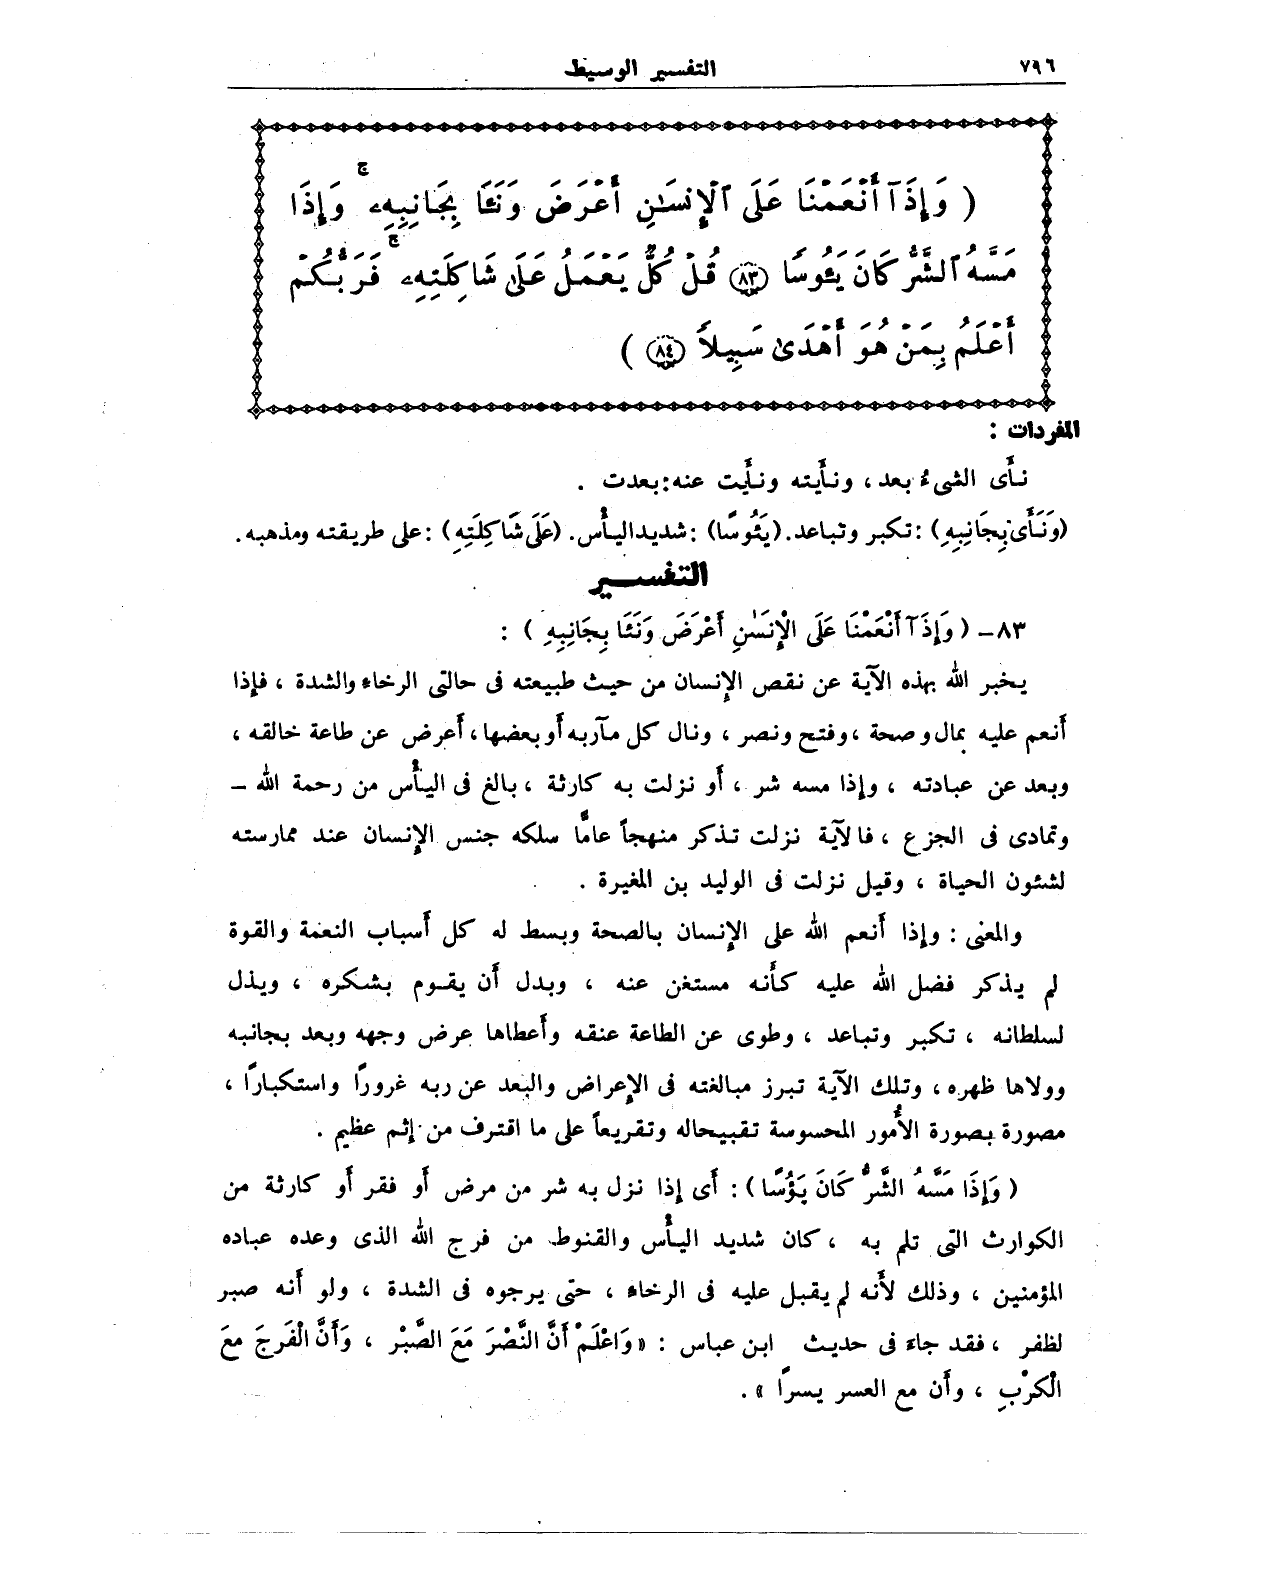 ٧٩٦
التفسير الوسيط
( وَإِذَآ أَنْعَمْنَا عَلَى ٱلْإِنسَٰنِ أَعْرَضَ وَنَـَٔا بِجَانِبِهِۦ ۚ وَإِذَا
مَسَّهُ ٱلشَّرُّ كَانَ يَـُٔوسًا ﴿٨٣﴾ قُلْ كُلٌّ يَعْمَلُ عَلَىٰ شَاكِلَتِهِۦ ۚ فَرَبُّكُمْ
أَعْلَمُ بِمَنْ هُوَ أَهْدَىٰ سَبِيلًا ﴿٨٤﴾ )
المفردات :
نأَى الشىءُ بعد ، ونأَيته ونأَيت عنه : بعدت .
(وَنَأَى بِجَانِبِهِ) : تكبر وتباعد. (يَئُوسًا) : شديد اليأْس. (عَلَى شَاكِلَتِهِ) : على طريقته ومذهبه.
التفســـير
٨٣ - ( وَإِذَآ أَنْعَمْنَا عَلَى الْإِنسَٰنِ أَعْرَضَ وَنَئَا بِجَانِبِهِ ) :
يخبر الله بهذه الآية عن نقص الإِنسان من حيث طبيعته فى حالتى الرخاء والشدة ، فإذا
أَنعم عليه بمال وصحة ، وفتح ونصر ، ونال كل مآربه أَو بعضها ، أَعرض عن طاعة خالقه ،
وبعد عن عبادته ، وإذا مسه شر ، أَو نزلت به كارثة ، بالغ فى اليأْس من رحمة الله –
وتمادى فى الجزع ، فالآية نزلت تذكر منهجاً عامًّا سلكه جنس الإِنسان عند ممارسته
لشئون الحياة ، وقيل نزلت فى الوليد بن المغيرة .
والمعنى : وإذا أَنعم الله على الإِنسان بالصحة وبسط له كل أَسباب النعمة والقوة
لم يذكر فضل الله عليه كأَنه مستغن عنه ، وبدل أَن يقوم بشكره ، ويذل
لسلطانه ، تكبر وتباعد ، وطوى عن الطاعة عنقه وأَعطاها عرض وجهه وبعد بجانبه
وولاها ظهره ، وتلك الآية تبرز مبالغته فى الإِعراض والبعد عن ربه غرورًا واستكبارًا ،
مصورة بصورة الأُمور المحسوسة تقبيحاله وتقريعاً على ما اقترف من إثم عظيم .
( وَإِذَا مَسَّهُ الشَّرُّ كَانَ يَؤُسًا ) : أَى إذا نزل به شر من مرض أَو فقر أَو كارثة من
الكوارث التى تلم به ، كان شديد اليأْس والقنوط من فرج الله الذى وعده عباده
المؤمنين ، وذلك لأَنه لم يقبل عليه فى الرخاءِ ، حتى يرجوه فى الشدة ، ولو أَنه صبر
لظفر ، فقد جاءَ فى حديث ابن عباس : « وَاعْلَمْ أَنَّ النَّصْرَ مَعَ الصَّبْرِ ، وَأَنَّ الْفَرَجَ مَعَ
الْكَرْبِ ، وأَن مع العسر يسرًا » .